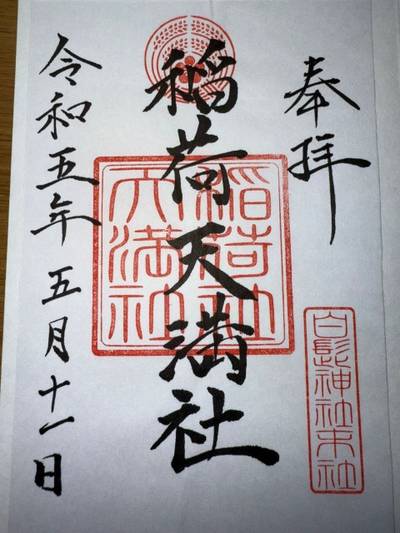 奉拝
白髭神社末社
稲荷天満社
稲荷社
天満社
令和五年五月十一日